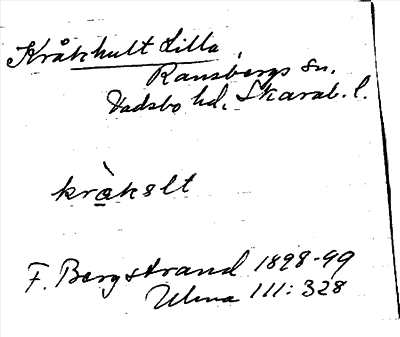 Kråkhult Lilla,
Ransbergs Sn.
Vadsbo hd, Skarab. l.
kràkəlt
F. Bergstrand 1898-99
Ulma 111: 328